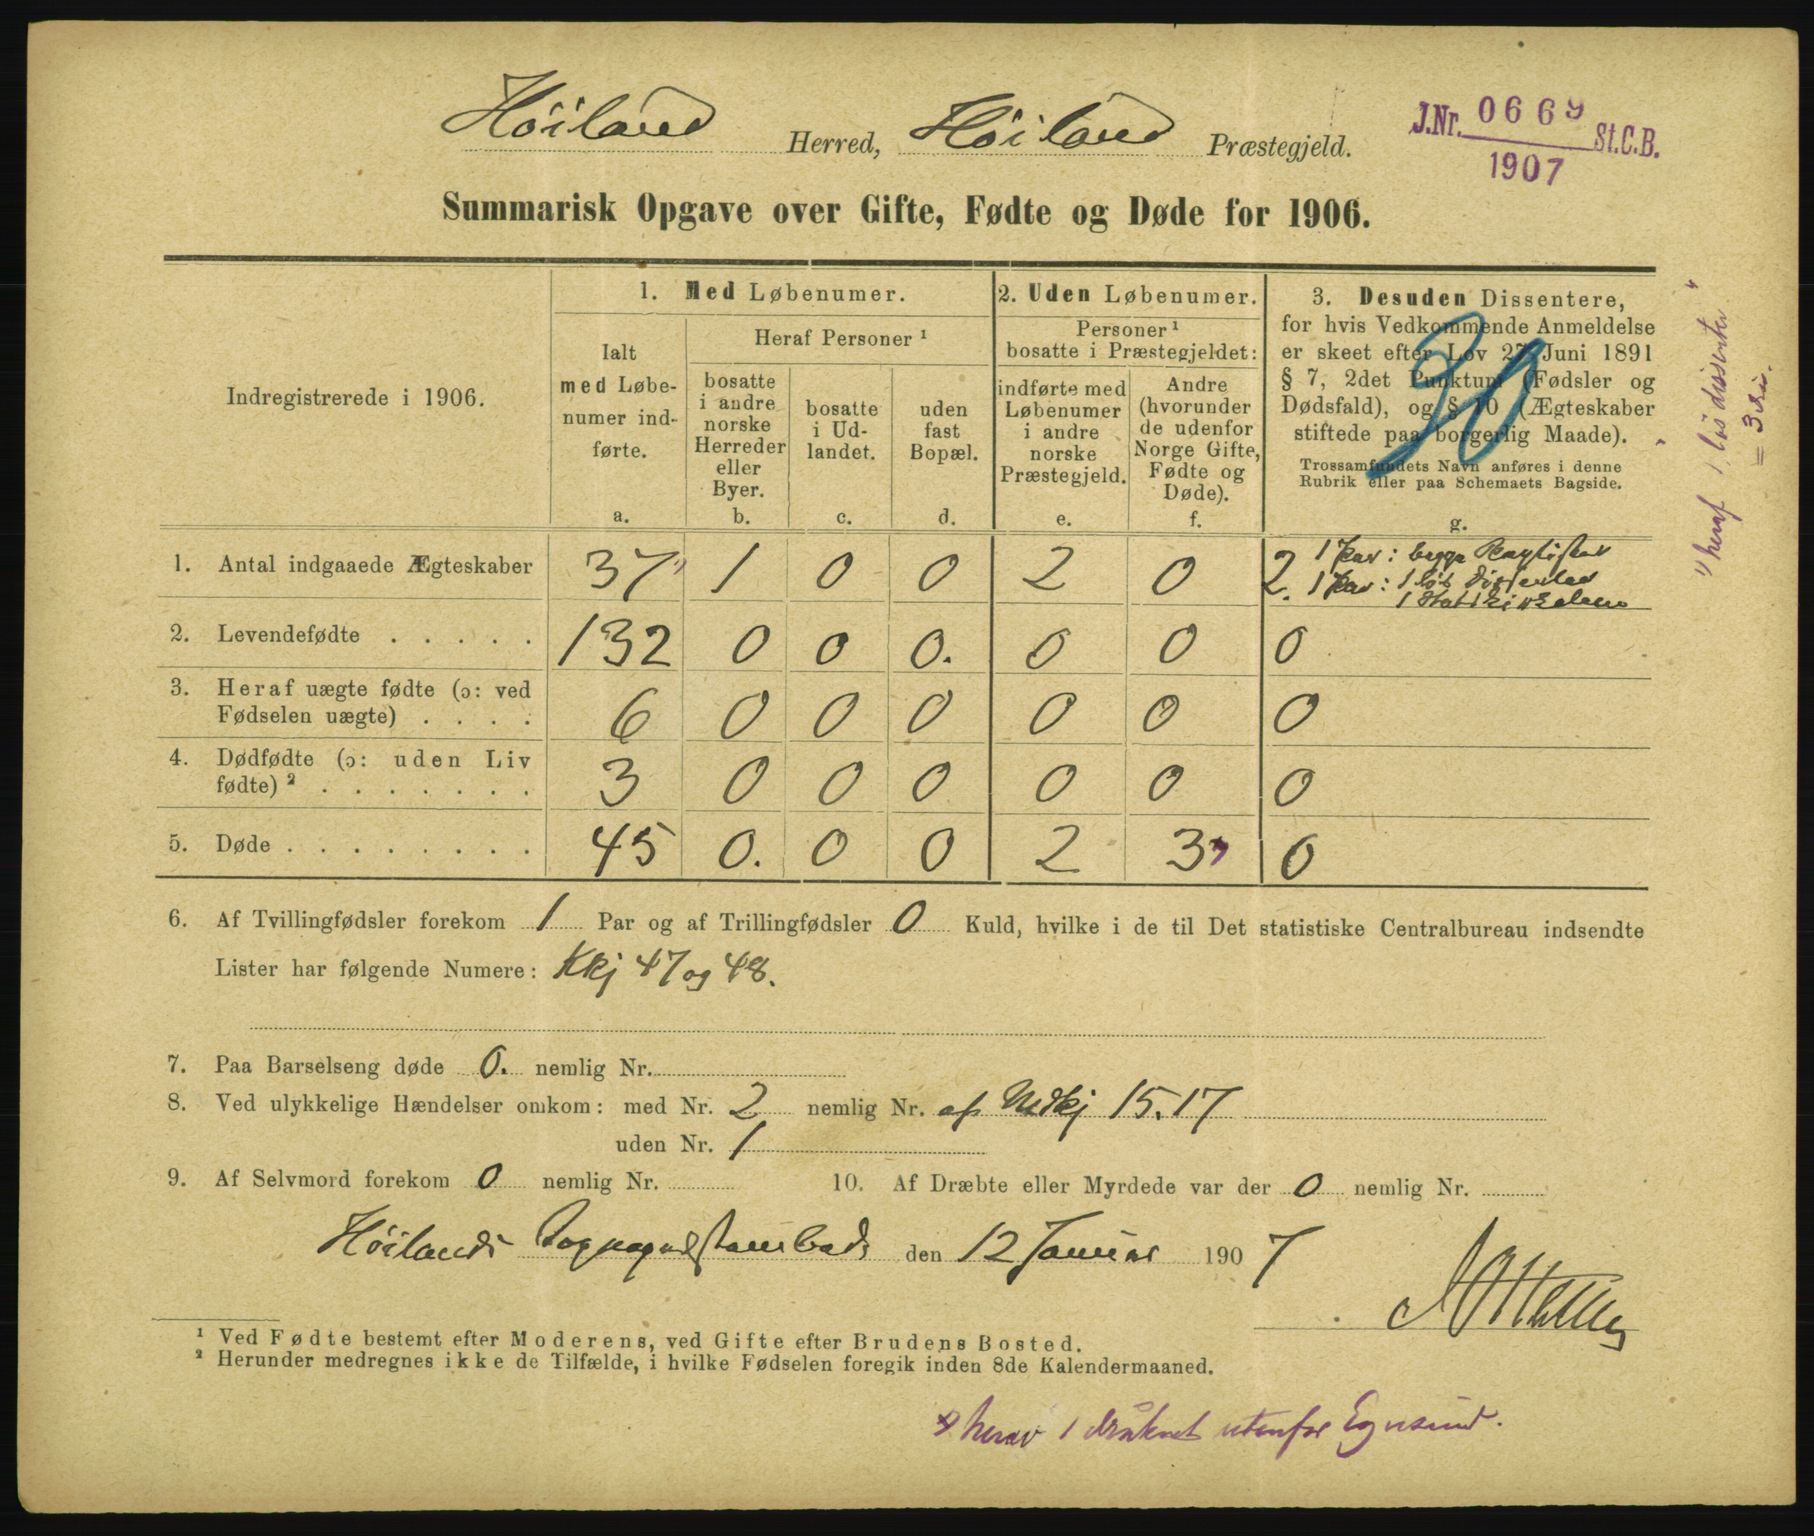 Höiland Herred, Höiland Præstegjeld.
J.Nr. 0669 St.C.B.
1907
Summarisk Opgave over Gifte, Fødte og Døde for 1906.
Indregistrerede i 1906.
1. Med Løbenumer.
Ialt med Løbenumer indførte.
a.
Heraf Personer ¹
bosatte i andre norske Herreder eller Byer.
b.
bosatte i Udlandet.
c.
uden fast Bopæl.
d.
2. Uden Løbenumer.
Personer ¹ bosatte i Præstegjeldet:
indførte med Løbenumer i andre norske Præstegjeld.
e.
Andre (hvorunder de udenfor Norge Gifte, Fødte og Døde).
f.
3. Desuden Dissentere,
for hvis Vedkommende Anmeldelse
er skeet efter Lov 27 Juni 1891
§ 7, 2det Punktum (Fødsler og
Dødsfald), og § 10 (Ægteskaber
stiftede paa borgerlig Maade).
Trossamfundets Navn anføres i denne
Rubrik eller paa Schemaets Bagside.
g.
30
1. Antal indgaaede Ægteskaber 37 1 0 0 2 0 2. 1 Par: begge Baptister
1 Par: 1 løs dissenter
1 Statskirken
2. Levendefødte . . . . . 132 0 0 0. 0 0 0
3. Heraf uægte fødte (ɔ: ved
Fødselen uægte) . . . . 6 0 0 0 0 0 0
4. Dødfødte (ɔ: uden Liv
fødte) ² . . . . . . . 3 0 0 0 0 0 0
5. Døde . . . . . . . . . 45 0. 0 0 2 3 0
6. Af Tvillingfødsler forekom 1 Par og af Trillingfødsler 0 Kuld, hvilke i de til Det statistiske Centralbureau indsendte
Lister har følgende Numere: Kkj 47 og 48.
7. Paa Barselseng døde 0. nemlig Nr.
8. Ved ulykkelige Hændelser omkom: med Nr. 2 nemlig Nr. af Mdkj 15.17
uden Nr. 1
9. Af Selvmord forekom 0 nemlig Nr.
10. Af Dræbte eller Myrdede var der 0 nemlig Nr.
Höilands den 12 Januar 1907
¹ Ved Fødte bestemt efter Moderens, ved Gifte efter Brudens Bosted.
² Herunder medregnes ikke de Tilfælde, i hvilke Fødselen foregik inden 8de Kalendermaaned.
herav 1 druknet utenfor Egersund.
heraf 1 løs dissenter